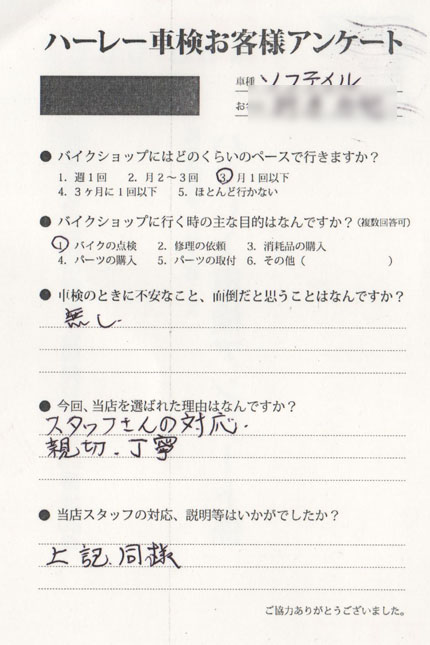 ハーレー車検お客様アンケート
車種 ソフテイル
お
● バイクショップにはどのくらいのペースで行きますか？
1. 週1回 2. 月2～3回 3. 月1回以下
4. 3ヶ月に1回以下 5. ほとんど行かない
● バイクショップに行く時の主な目的はなんですか？（複数回答可）
1. バイクの点検 2. 修理の依頼 3. 消耗品の購入
4. パーツの購入 5. パーツの取付 6. その他（ ）
● 車検のときに不安なこと、面倒だと思うことはなんですか？
無し.
● 今回、当店を選ばれた理由はなんですか？
スタッフさんの対応.
親切.丁寧
● 当店スタッフの対応、説明等はいかがでしたか？
上記.同様
ご協力ありがとうございました。